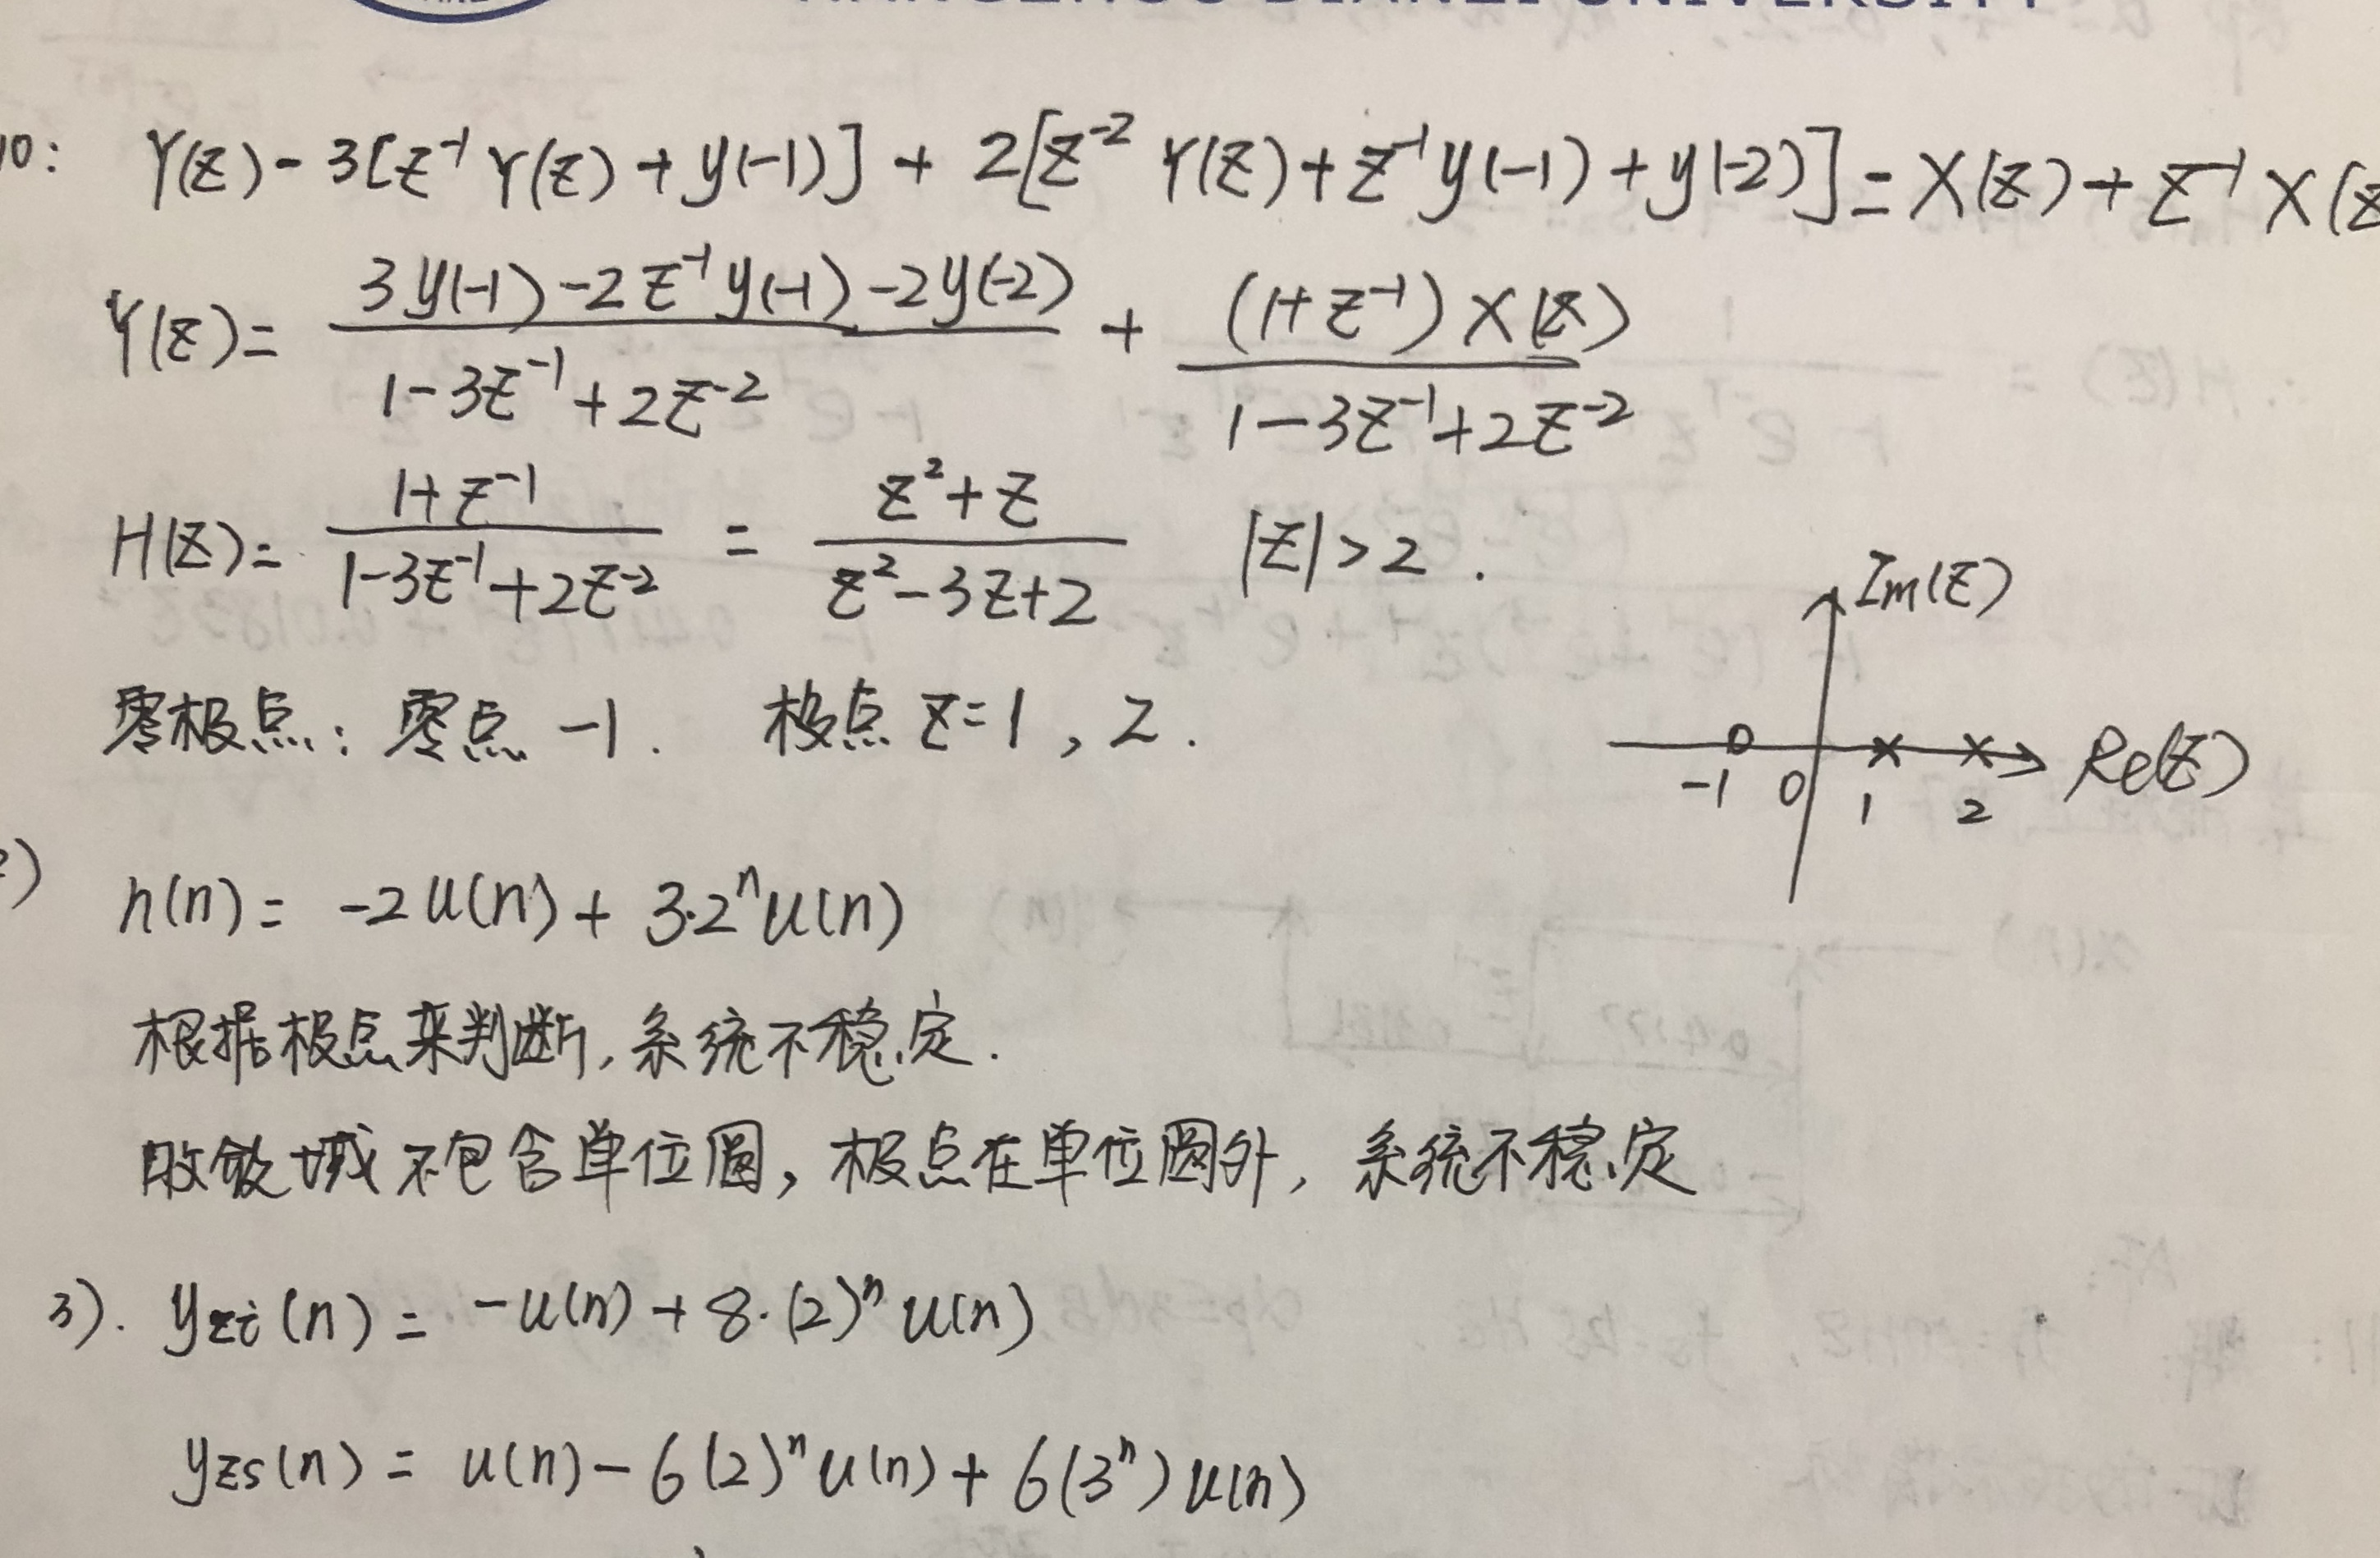 HANGZHOU DIANZI UNIVERSITY
10: Y(z)-3[z⁻¹Y(z)+y(-1)]+2[z⁻²Y(z)+z⁻¹y(-1)+y(-2)]=X(z)+z⁻¹X(z
Y(z)= (3y(-1)-2z⁻¹y(-1)-2y(-2))/(1-3z⁻¹+2z⁻²) + ((1+z⁻¹)X(z))/(1-3z⁻¹+2z⁻²)
H(z)= (1+z⁻¹)/(1-3z⁻¹+2z⁻²) = (z²+z)/(z²-3z+2) |z|>2.
Im(z)
零极点: 零点 -1. 极点 z=1, 2.
Re(z)
-1 0 1 2
) h(n)= -2u(n)+3·2ⁿu(n)
根据极点来判断,系统不稳定.
收敛域不包含单位圆,极点在单位圆外,系统不稳定
3). yzi(n)= -u(n)+8·(2)ⁿu(n)
yzs(n)= u(n)-6(2)ⁿu(n)+6(3ⁿ)u(n)